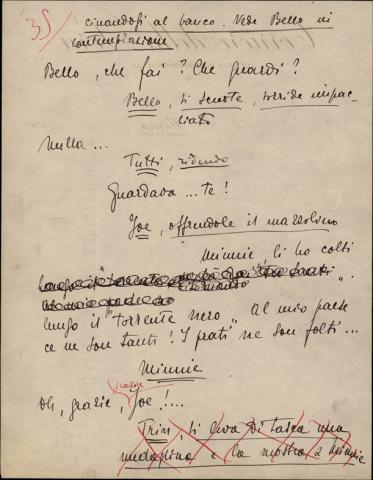 35
cinandosi al banco. Vede Bello in
contemplazione
Bello, che fai? Che guardi?
Bello, si scuote, sorride impac-
ciato
Nulla...
Tutti, ridendo
Guardava...te!
Joe, offrendole il mazzolino
Minnie li ho colti
lungo il "torrente nero". Al mio paese
ce ne son tanti! I prati ne son folti...
Minnie
Oh, grazie, Joe!...
Trin, si leva di tasca una
e la mostra a Minnie